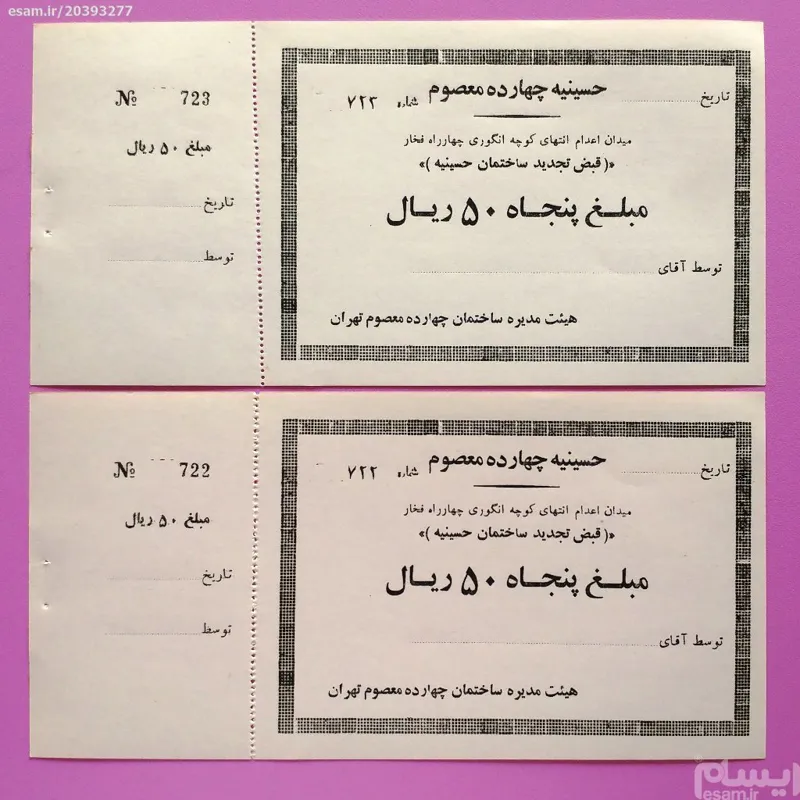 esam.ir/20393277
حسینیه چهارده معصوم
تاریخ
شماره ۷۲۳
میدان اعدام انتهای کوچه انگوری چهارراه فخار
«( قبض تجدید ساختمان حسینیه )»
مبلغ پنجاه ۵۰ ریال
توسط آقای
هیئت مدیره ساختمان چهارده معصوم تهران
№ 723
مبلغ ۵۰ ریال
تاریخ
توسط
حسینیه چهارده معصوم
تاریخ
شماره ۷۲۲
میدان اعدام انتهای کوچه انگوری چهارراه فخار
«( قبض تجدید ساختمان حسینیه )»
مبلغ پنجاه ۵۰ ریال
توسط آقای
هیئت مدیره ساختمان چهارده معصوم تهران
№ 722
مبلغ ۵۰ ریال
تاریخ
توسط
ایسام
esam.ir